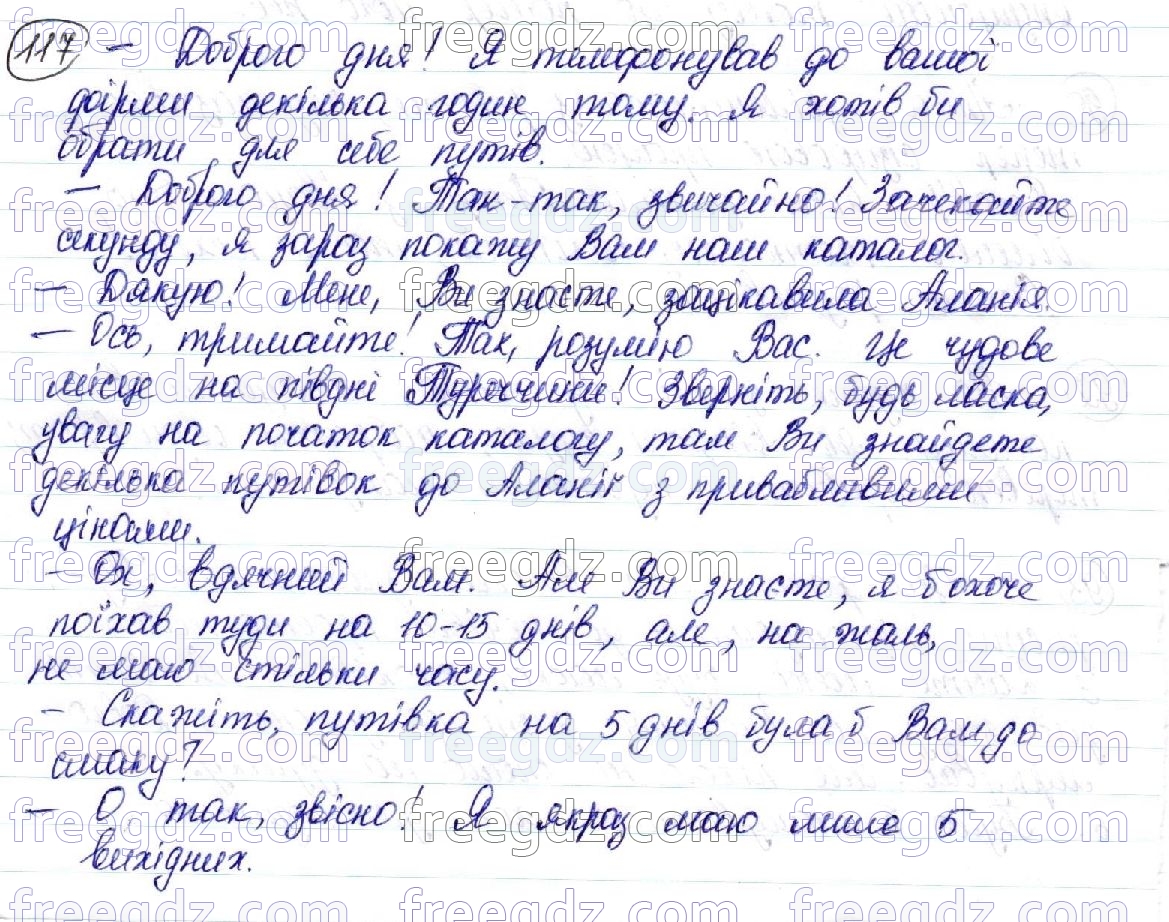 117 – Доброго дня! Я телефонував до вашої
фірми декілька годин тому. Я хотів би
обрати для себе путів.
– Доброго дня! Так-так, звичайно! Зачекайте
секунду, я зараз покажу Вам наш каталог.
– Дякую! Мене, Ви знаєте, зацікавила Аланія.
– Ось, тримайте! Так, розумію Вас. Це чудове
місце на півдні Туреччини! Зверніть, будь ласка,
увагу на початок каталогу, там Ви знайдете
декілька путівок до Аланії з привабливими
цінами.
– Ох, вдячний Вам. Але Ви знаєте, я б охоче
поїхав туди на 10-15 днів, але, на жаль,
не маю стільки часу.
– Скажіть, путівка на 5 днів була б Вам до
смаку?
– О, так, звісно! Я якраз маю лише 5
вихідних.
freegdz.com